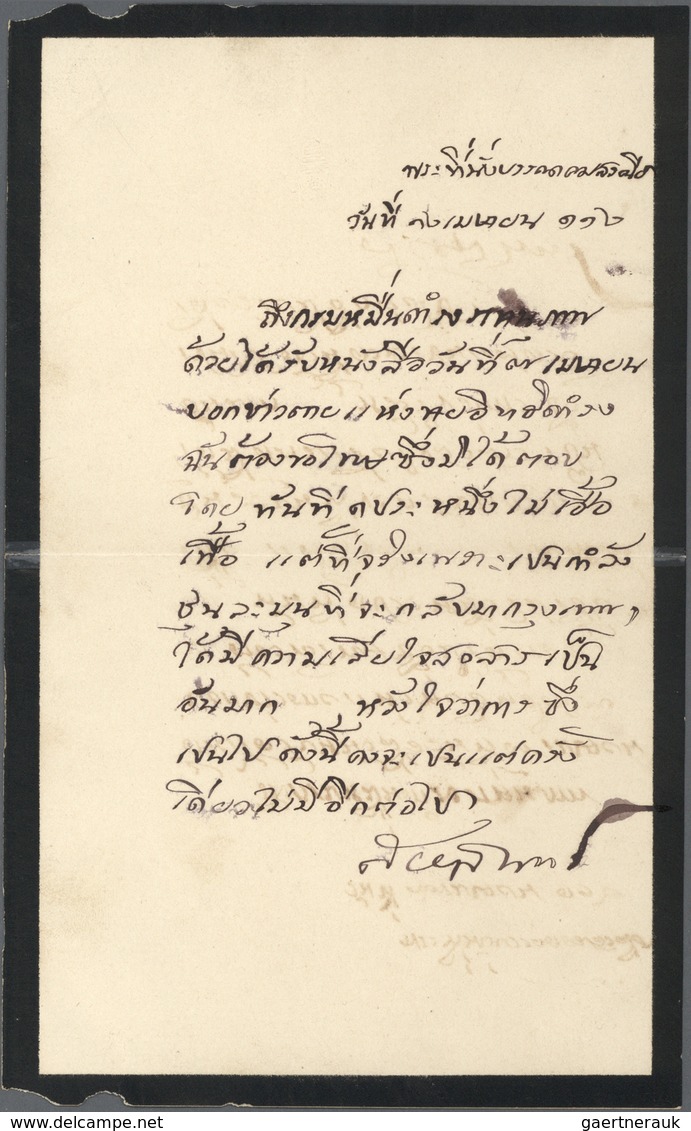 พระที่นั่งบรรณาคมสรณี
วันที่ เมษายน ๑๑๖
ถึงกรมหมื่นดำรงราชานุภาพ
ด้วยได้รับหนังสือวันที่ ๓ เมษายน
บอกข่าวตายแห่ง ดำรง
ฉันต้องขอโทษซึ่งมิได้ตอบ
โดยทันที ดุประหนึ่งไม่เอื้อ
เฟื้อ แต่ที่จริงเพราะเปนกำลัง
ชุนลมุนที่จะกลับมากรุงเทพฯ
ได้มีความเสียใจสงสารเปน
อันมาก หวังใจว่าการซึ่ง
เปนไปดังนี้คงจะเปนแต่ครั้ง
เดียวไม่มีอีกต่อไป
สยามินทร์
gaertnerauk